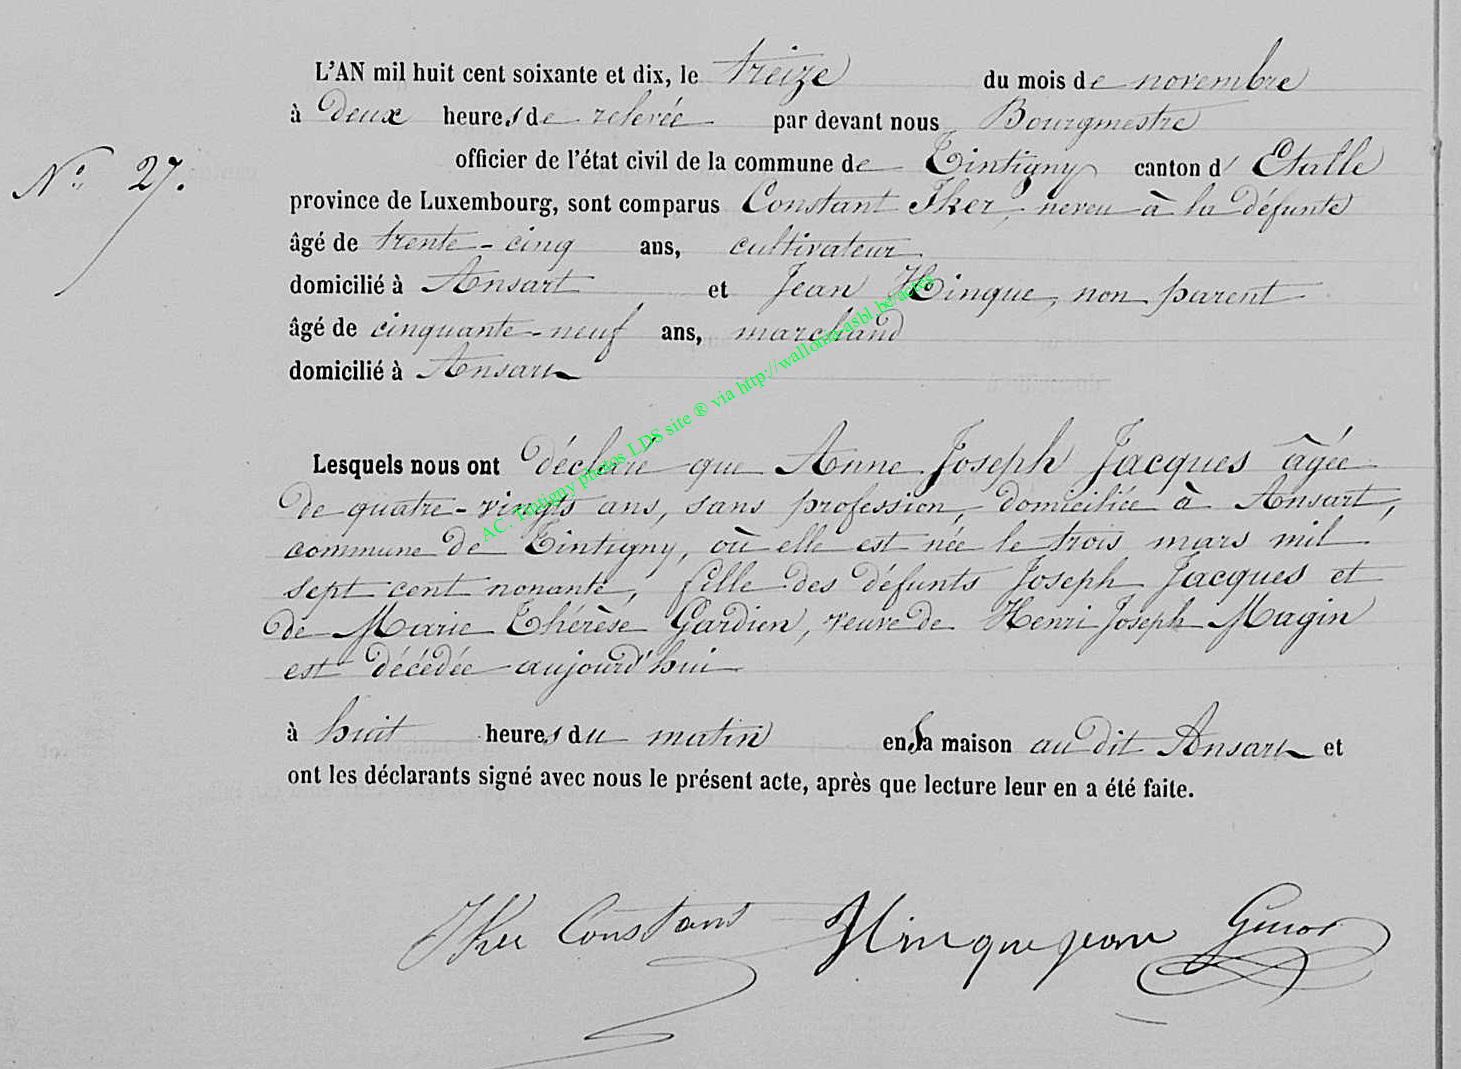 L'AN mil huit cent soixante et dix, le treize du mois de novembre
à deux heures de relevée par devant nous Bourgmestre
officier de l'état civil de la commune de Tintigny canton d' Etalle
N° 27.
province de Luxembourg, sont comparus Constant Iker, neveu à la défunte
âgé de trente-cinq ans, cultivateur
domicilié à Ansart et Jean Hinque, non parent
âgé de cinquante-neuf ans, marchand
domicilié à Ansart
Lesquels nous ont déclaré que Anne Joseph Jacques âgée
de quatre-vingts ans, sans profession, domiciliée à Ansart,
commune de Tintigny, où elle est née le trois mars mil
sept cent nonante, fille des défunts Joseph Jacques et
de Marie Thérèse Gardien, veuve de Henri Joseph Magin
est décédée aujourd'hui
à huit heures du matin en sa maison au dit Ansart et
ont les déclarants signé avec nous le présent acte, après que lecture leur en a été faite.
Iker Constant Hinque jean
AC. Tintigny photos LDS site ® via http://wallonia-asbl.be/actes